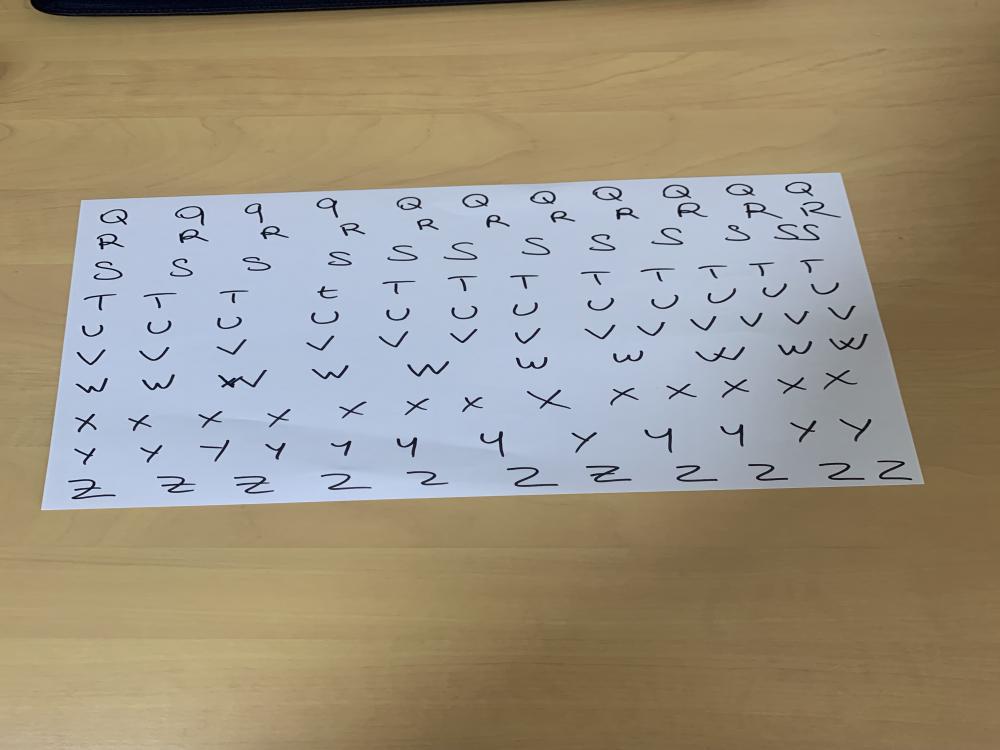 Q q q q Q Q Q Q Q Q Q
R R R R R R R R R R R
S S S S S S S S S S SS
T T T t T T T T T T T T
U U U U U U U U U U U U
V V V V V V V V V V V V V
W W W W W W W W W W
X X X X X X X X X X X X
Y Y Y Y Y Y Y Y Y Y Y Y
Z Z Z Z Z Z Z Z Z Z Z